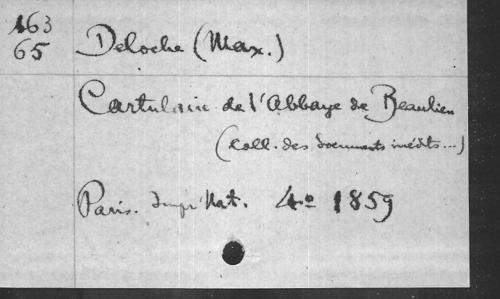 163
65
Deloche (Max.)
Cartulaire de l'Abbaye de Beaulieu
(Coll. des documents inédits...)
Paris. Impr Nat. 4º 1859